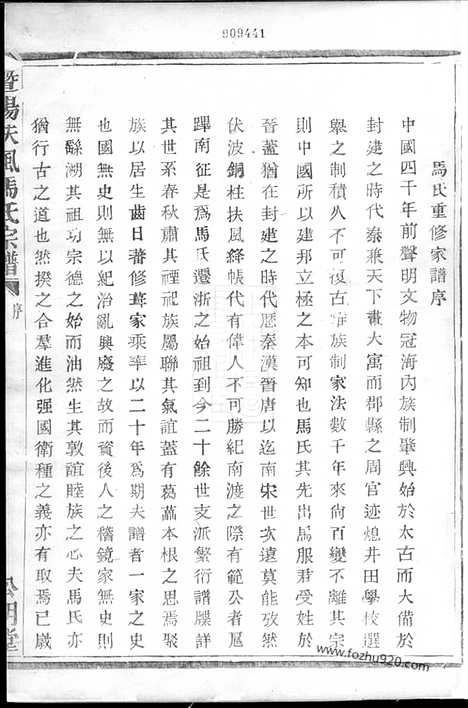 909441
馬氏重修家譜序
中國四千年前聲明文物冠海內族制肇興始於太古而大備於
封建之時代秦兼天下畫大寓而郡縣之周官迹熄井田學校選
舉之制積久不可復古唯族制家法數千年來尙百變不離其宗
則中國所以建邦立極之本可知也馬氏其先出馬服君受姓於
晉蓋猶在封建之時代歷秦漢晉唐以迄南宋世次遠莫能攷然
伏波銅柱扶風絳帳代有偉人不可勝紀南渡之際有範公者扈
蹕南征是爲馬氏遷浙之始祖到今二十餘世支派繁衍譜牒詳
其世系春秋肅其禋祀族屬聯其氣誼蓋有葛藟本根之思焉聚
族以居生齒日蕃修葺家乘率以二十年爲期夫譜者一家之史
也國無史則無以紀治亂興廢之故而資後人之稽鏡家無史則
無繇溯其祖功宗德之始而油然生其敦誼睦族之心夫馬氏亦
猶行古之道也然揆之合羣進化强國衛種之義亦有取焉已歲
暨陽扶風馬氏宗譜
序
www.fozhu920.com